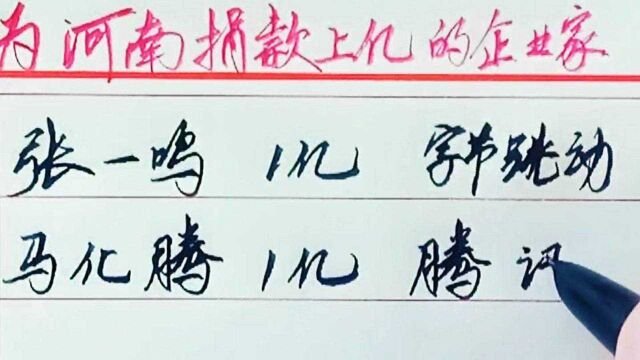 为河南捐款上亿的企业家
张一鸣 1亿 字节跳动
马化腾 1亿 腾讯